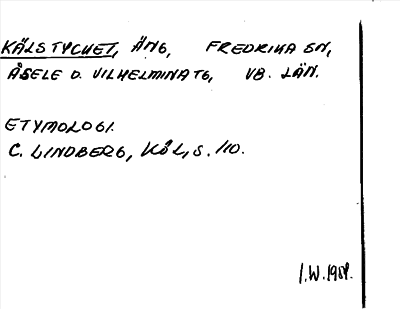 KÄLSTYCKET, ÄNG, FREDRIKA SN,
ÅSELE O. VILHELMINA TG, VB. LÄN.
ETYMOLOGI.
C. LINDBERG, KÖL, S. 110.
I.W. 1981.